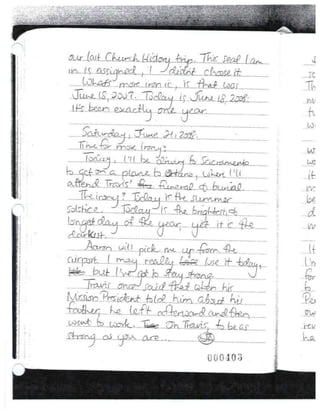 our last Church History trip. This seat I am
in is assigned, I didn't choose it.
What's more ironic, is that was
June 18, 2007. Today is June 18, 2008.
It's been exactly one year.
Saturday, June 21, 2008.
Time for more Irony:
Today, I'll be driving to Sacramento
to get on a plane to where I'll
attend Travis' funeral & burial.
The irony? Today is the summer
solstice. Today is the brightest, &
longest day of the year, yet it is the
darkest.
Aaron will pick me up from the
airport. I may really lose it today,
but I've got to stay strong.
Travis once said that when his
Mission President told him about his
father, he left afterward and then
went to work. On Travis, to be as
strong as you are...
000403